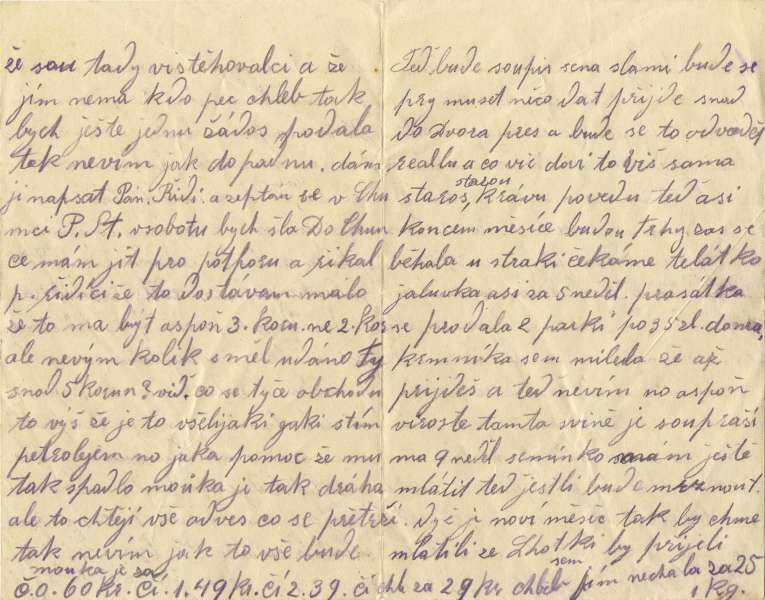 že sou tady vistěhovalci a že
jím nemá kdo pec chleb tak
bych ješte jednu žádos podala
tak nevím jak dopadnu. dám
ji napsat Pán. Řidi. a zeptán se v Chu
mci P. St. vsobotu bych šla Do Chum
ce mám jít pro potporu a řikal
p. řidiči že to dostavam malo
že to ma být aspoň 3. koru. ne 2. kor
ale nevým kolik s měl udáno ty
snad 5 korun? viď. co se tyče obchodu
to výš že je to všelijaki gaki stím
petrolejem no jaka pomoc že mu
tak spadlo mouka je tak dráha
ale to chtějí vše odves co se přeterži.
tak nevím jak to vše bude
mouka je za
č.0. 60 kr. čí. 1. 49 kr. čí 2. 39. čí chle za 29 kr chleb
Teď bude soupis sena slami bude se
pry muset něco dat přijde snad
do Dvora pres a bude se to odvadět
reallu a co vic doví to víš sama
staros, starou krávu povedu teď asi
koncem měsíce budou trhy zas se
běhala u straki čekáme telátko
jaluvka asi za 5 neďil. prasátka
se prodala 2 parki po 35 zl. doma,
krmníka sem mňela že až
prijdeš a teď nevím no aspoň
viroste tamta svině je souprasi
ma 9 neďil semínko mám ještě
mlátit teď jestli bude mrznout.
dyč je noví měsíc tak by chme
mlátili ze Lhotki by přijeli
sem jím nechala za 25
1 kg.